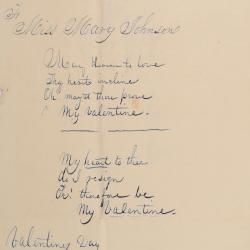 To
Miss Mary Johnson
May Heaven to love
Thy heart incline
Oh! mayst thou prove
My Valentine.
My heart to thee
do I resign
Oh! therefore be
My Valentine.
Valentines Day